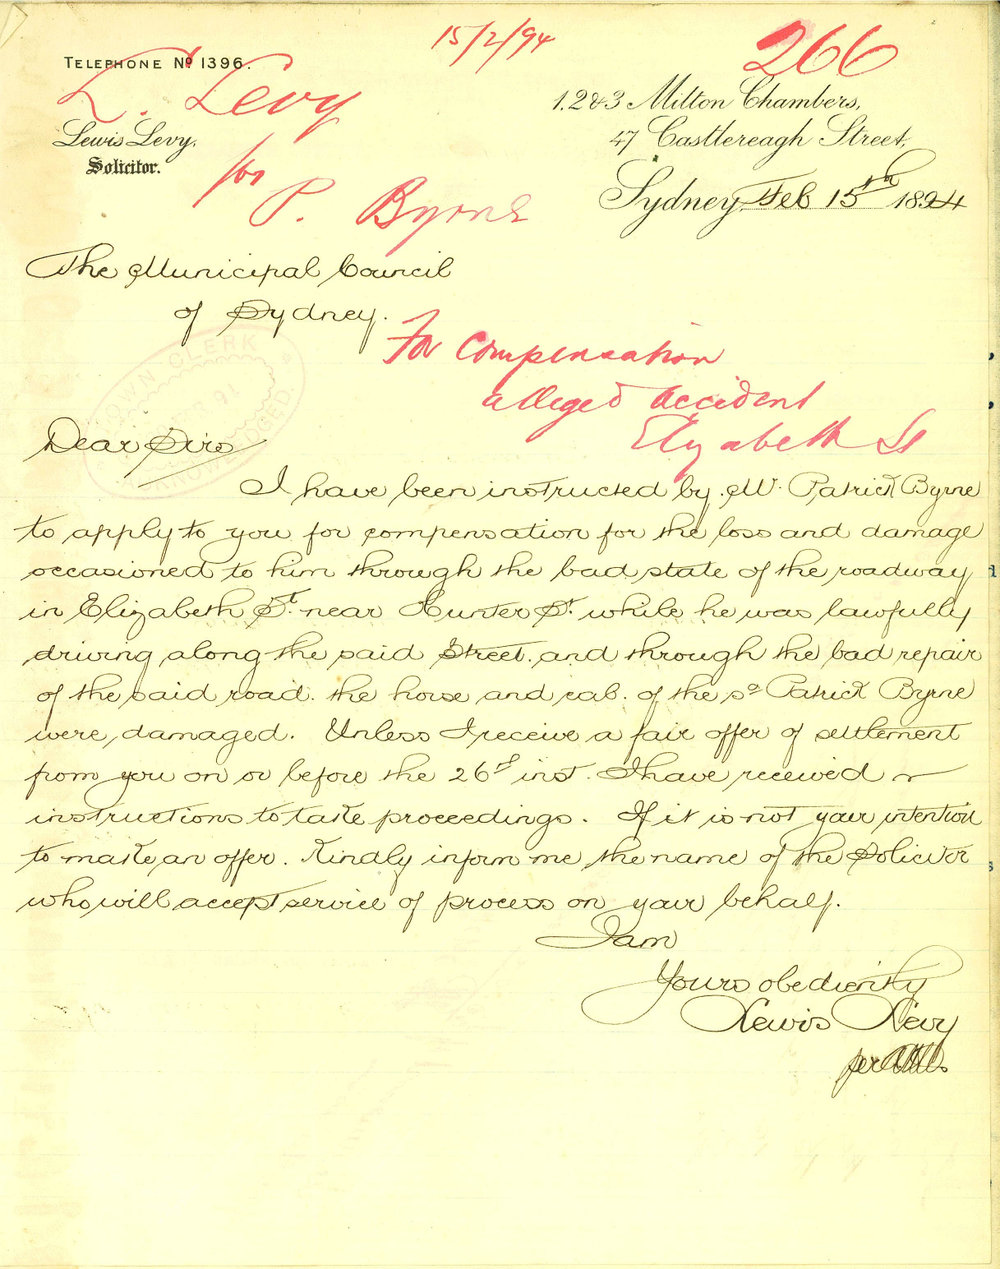 15/2/94
266
TELEPHONE No 1396.
L. Levy
for
P. Byrne
Lewis Levy,
Solicitor.
1, 2 & 3 Milton Chambers,
47 Castlereagh Street,
Sydney, Feb 15th 1894
The Municipal Council
of Sydney.
For Compensation
alleged accident
Elizabeth St
TOWN CLERK
ACKNOWLEDGED.
Dear Sirs
I have been instructed by Mr. Patrick Byrne
to apply to you for compensation for the loss and damage
occasioned to him through the bad state of the roadway
in Elizabeth St. near Hunter St. while he was lawfully
driving along the said Street. and through the bad repair
of the said road. the horse and cab. of the sd Patrick Byrne
were, damaged. Unless I receive a fair offer of settlement
from you on or before the 26th inst. I have received
instructions to take proceedings. If it is not your intention
to make an offer. Kindly inform me the name of the Solicitor
who will accept service of process on your behalf.
I am
Yours obediently
Lewis Levy
per